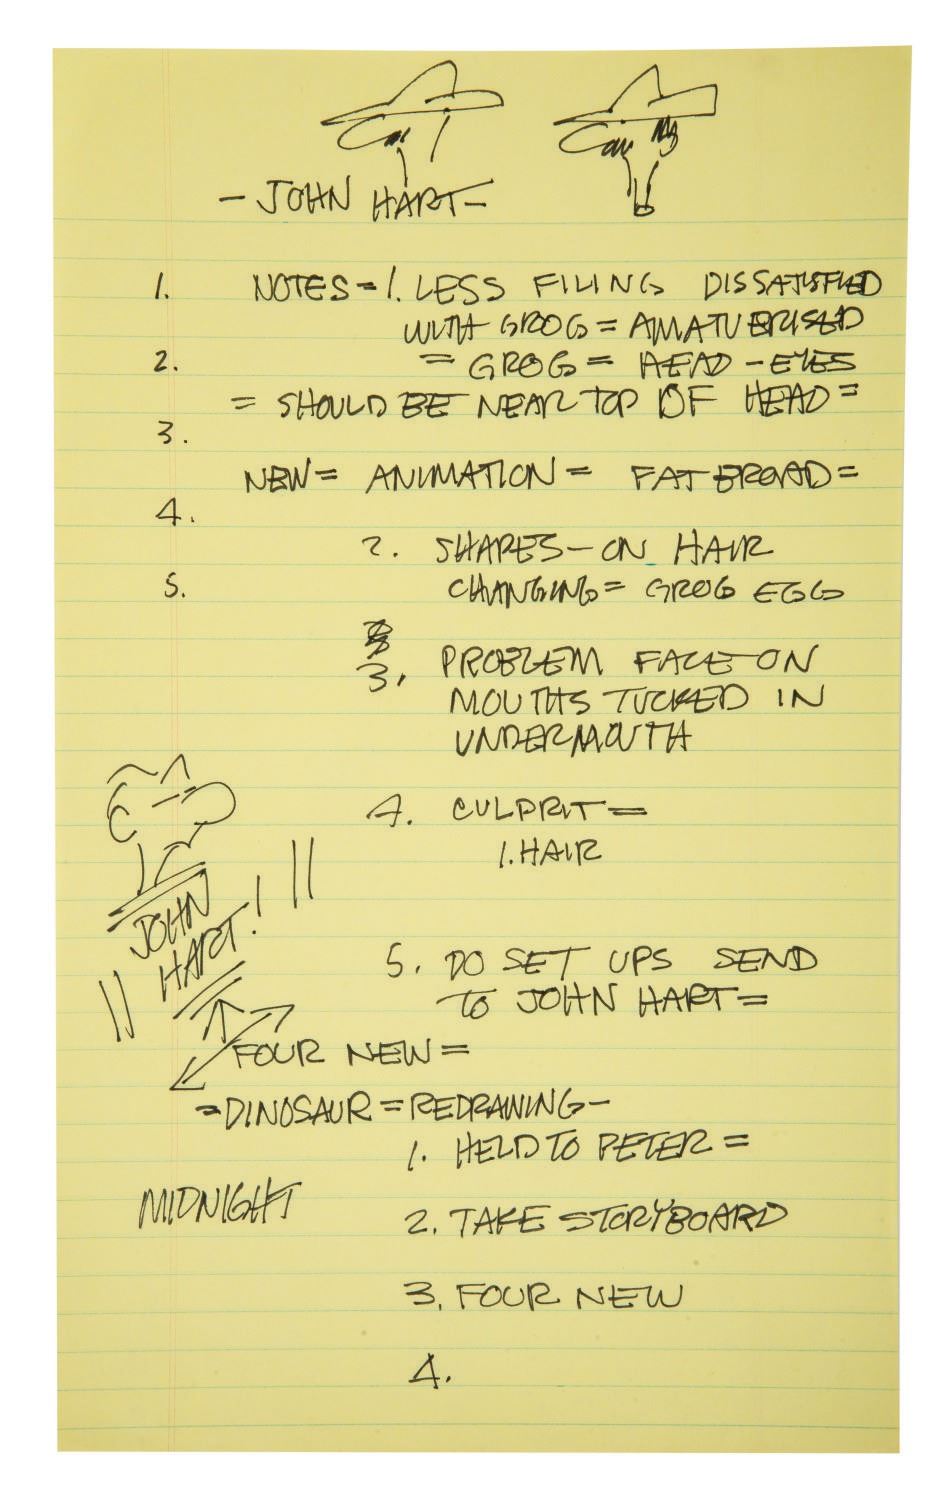 - JOHN HART -
1. NOTES = 1. LESS FILING DISSATISFIED
WITH GROG = AMATUERISED
2. = GROG = HEAD - EYES
= SHOULD BE NEAR TOP OF HEAD =
3.
NEW = ANIMATION = FAT BROAD =
4.
2. SHAPES - ON HAIR
5. CHANGING = GROG EGG
3. PROBLEM FACE ON
MOUTHS TUCKED IN
UNDERMOUTH
4. CULPRIT =
1. HAIR
JOHN
HART!
5. DO SET UPS SEND
TO JOHN HART =
FOUR NEW =
= DINOSAUR = REDRAWING -
1. HELD TO PETER =
MIDNIGHT
2. TAKE STORYBOARD
3. FOUR NEW
4.